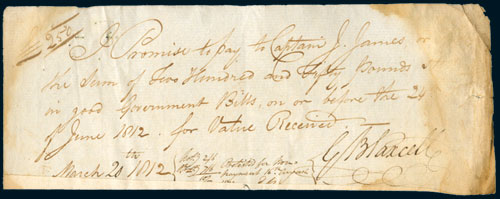 £ 250
I Promise to pay to Captain J. James or
the Sum of Two Hundred and Fifty Pounds
in good Government Bills, on or before the 24
of June 1812 - for Value Received
March 20th 1812
Protested for Non
payment
G Blaxcell